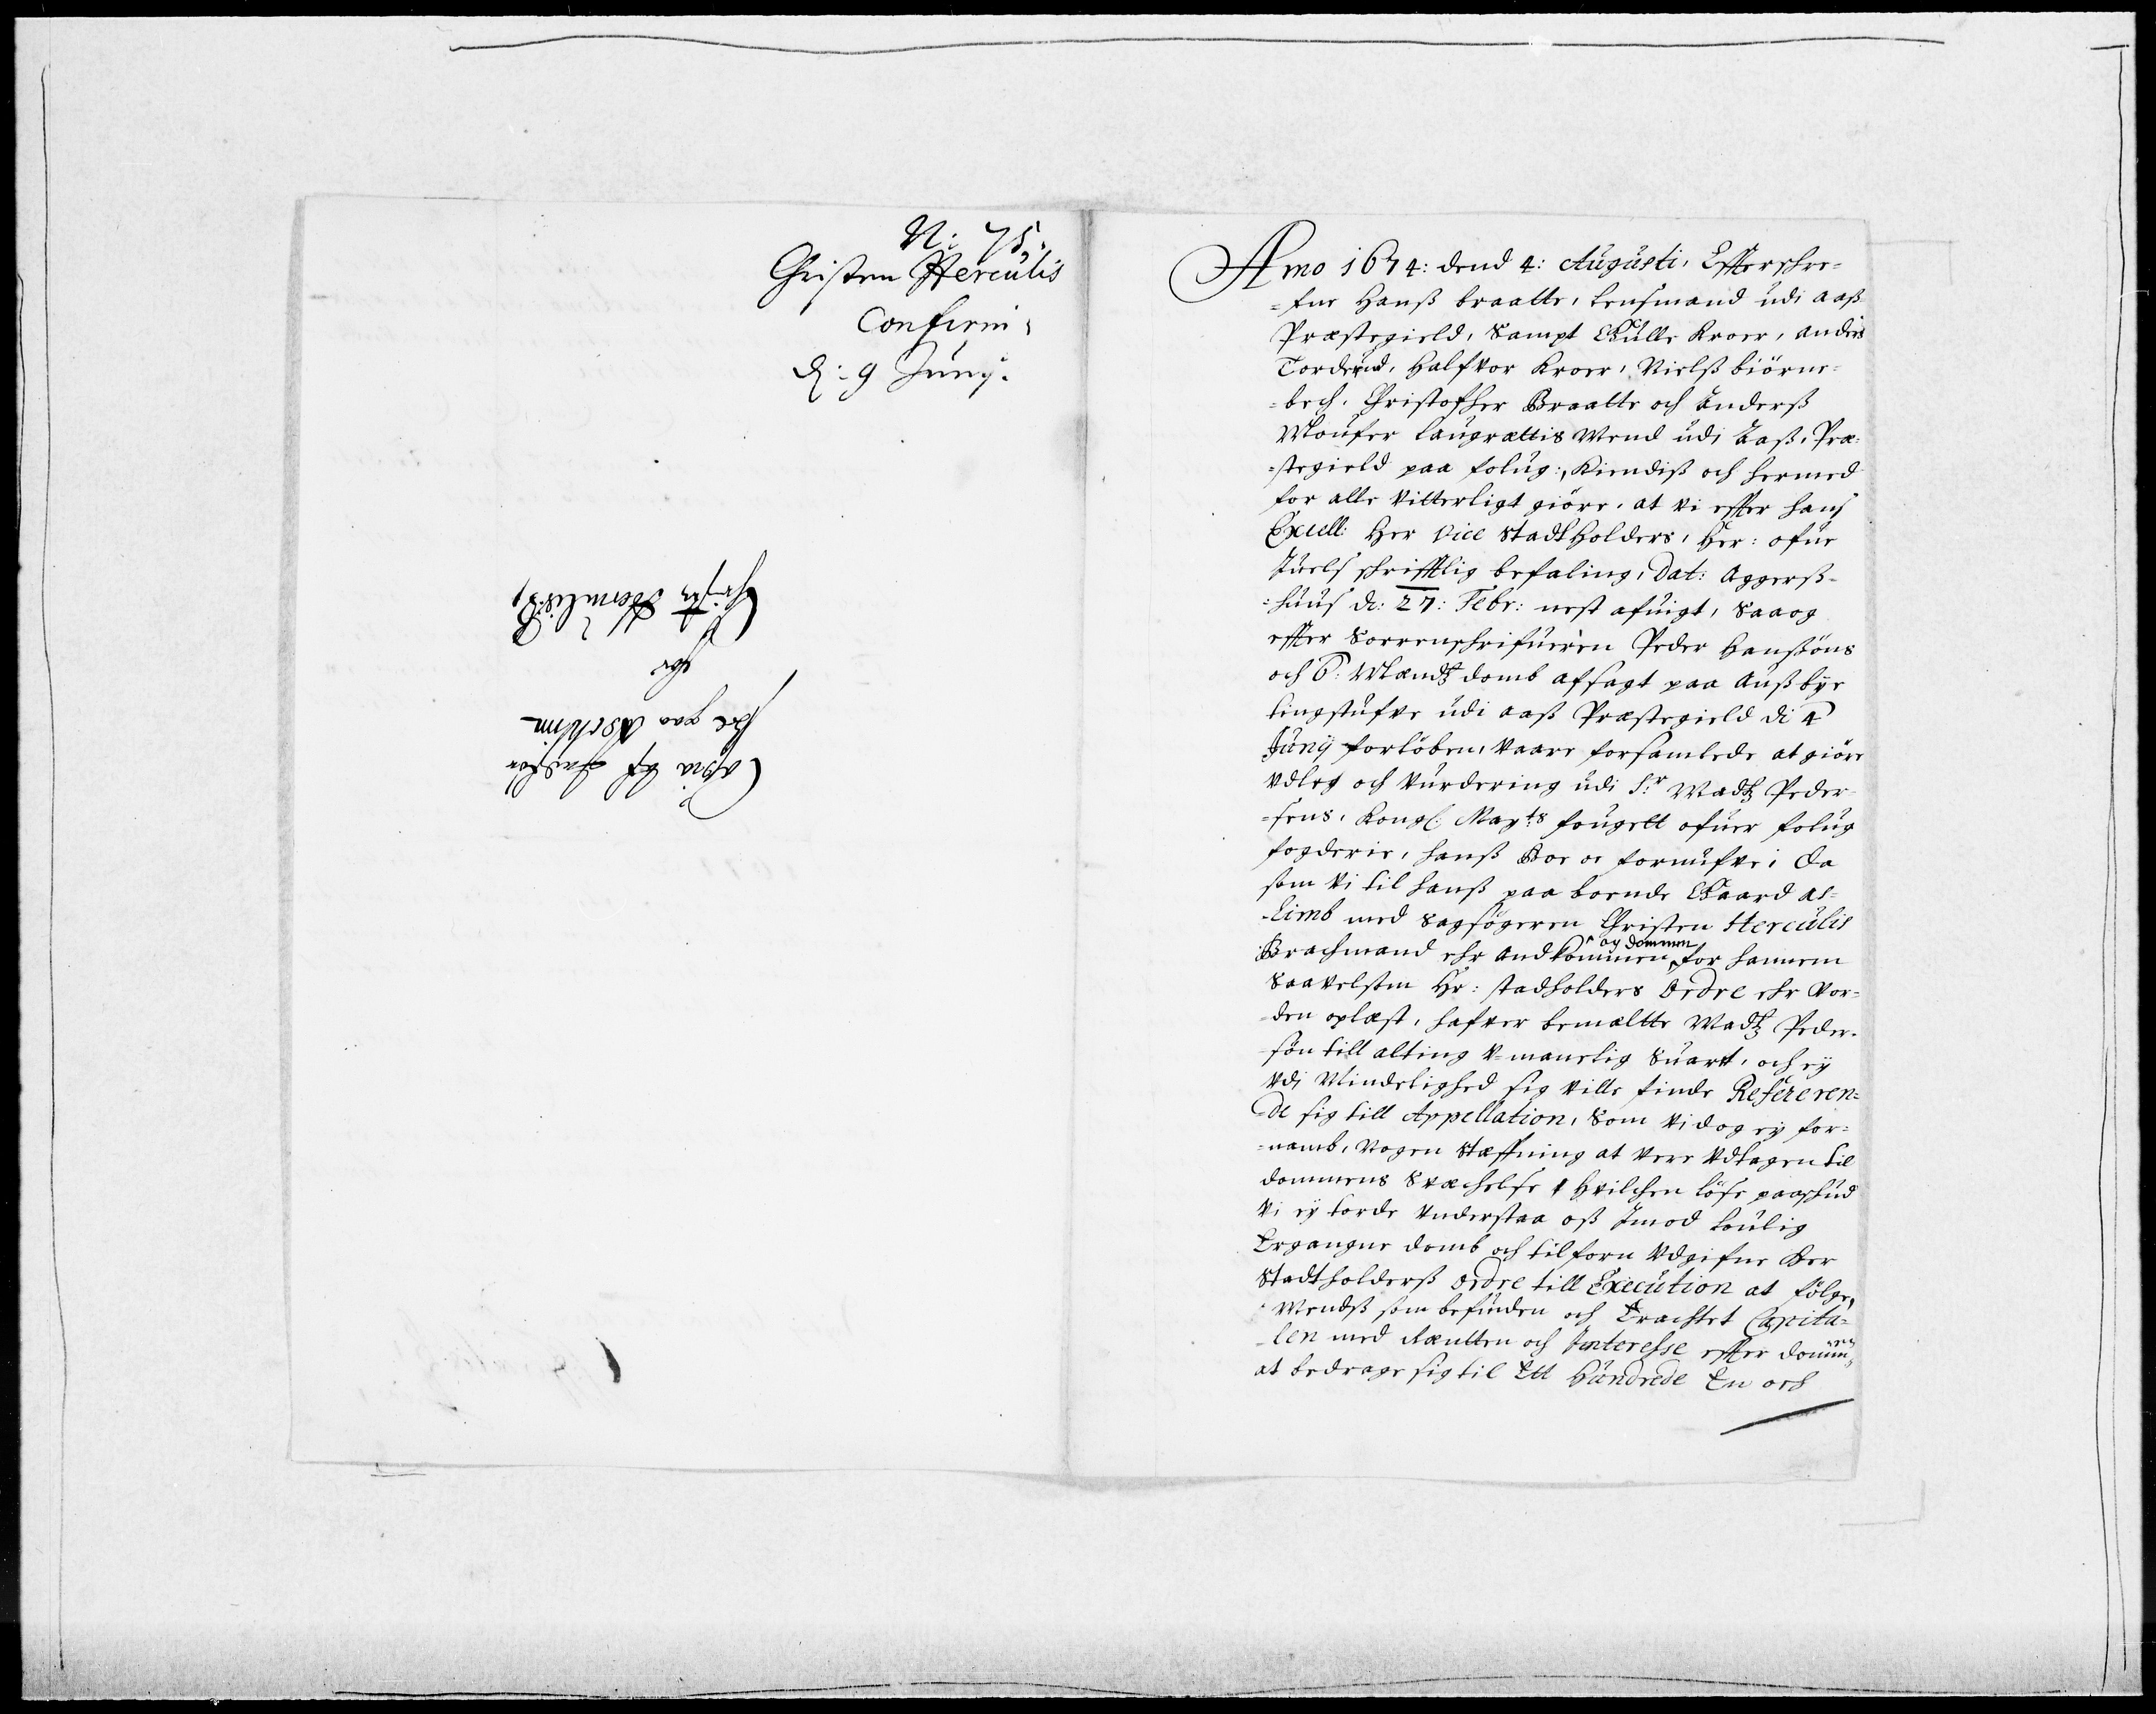 N: 75.
Christen Herculis
Confirm:
D: 9 Junij.
Copia Af Skiøde
paa Askim
for
Christen Herculis B:
Anno 1674: dend 4: Augusti, Effterschre-
=fne Hanß braatte, Lensmand udi aaß
Præstegield, Sampt Gulle Kroer, anders
Torderud, Halfvor Kroer, Nielß biörne-
=bech, Christopher Braatte och Anderß
Moufer laugrættis Mend udi Aaß, Præ-
=stegield paa folug:, Kiendiß och hermed
for alle vitterligt giöre, at vi effter hans
Excell: Her Vice Stadtholders, Her: ofue
Juels schrifftlig befaling, Dat: Aggerß-
=huus d: 27: Febr: nest afuigt, Saa og
effter Sorrenschrifueren Peder Hanßöns
och 6: Mændtz domb afsagt paa Außbye
tingstufve udi aaß Præstegield di 4
Junij forløben, vaare forsamlede at giöre
vdleg och vurdering udi Sr Madtz Peder-
=sens, Kongl: Mayts fougett ofuer folug
fogderie, hanß Boe oc formufve; Da
som vi til hanß paa boende Gaard As-
=kimb med Sagsøgeren Christen Herculis
Brachmand ehr andkommen, og dommen for hannem
Saavelsom Hr: stadholders Ordre ehr vor-
=den oplæst, hafver bemælte Madtz Peder-
=søn till alting v-manelig Suaret, och ey
vdi Mindelighed sig ville finde Refereren-
=de sig till Appellation, Som vi dog ey for-
=namb, nogen Stæffning at vere vdtagen til
dommens Svæchelse, hvilchen löse paaschud
vi ey torde vnderstaa oß Imod loulig
Ergangne domb och tilforn vdgifne Her
Stadtholderß Ordre till Execution at fölge,
Mendß som befinden och Erachtet Capita-
=len med Rænten och Interesse effter dommen
at bedrage sig til Ett Hundrede En och